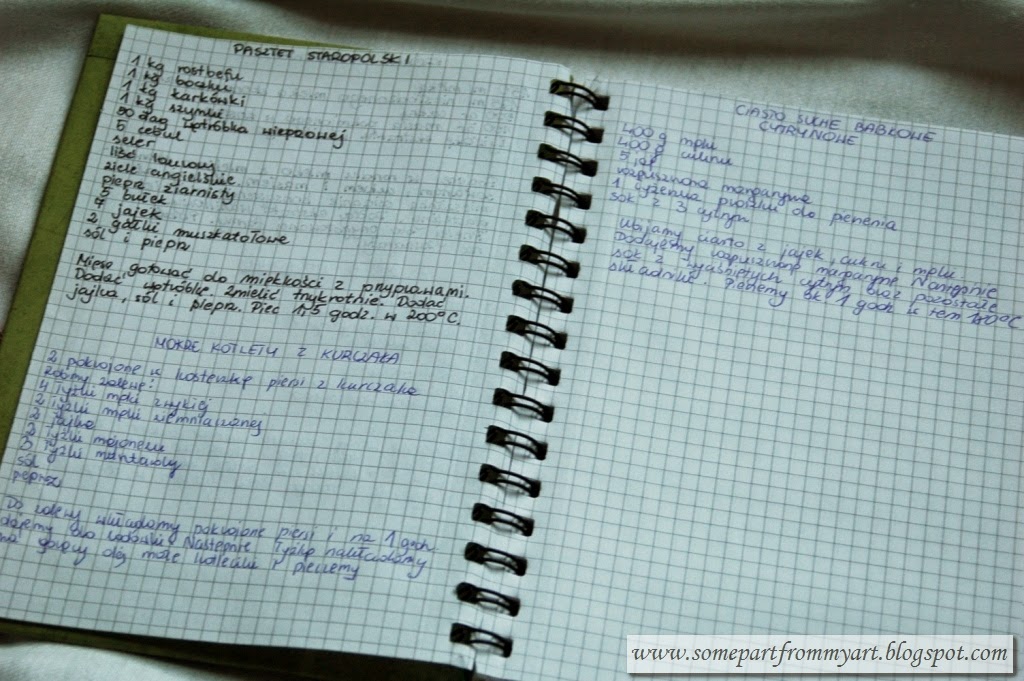 PASZTET STAROPOLSKI
1 kg rostbefu
1 kg boczku
1 kg karkówki
1 kg szynki
50 dag wątróbka wieprzowej
5 cebul
seler
liść laurowy
ziele angielskie
pieprz ziarnisty
5 bułek
7 jajek
2 gałki muszkatołowe
sól i pieprz
Mięso gotować do miękkości z przyprawami.
Dodać wątróbkę. Zmielić trzykrotnie. Dodać
jajka, sól i pieprz. Piec 1,5 godz. w 200°C.
MOKRE KOTLETY Z KURCZAKA
2 pokrojone w kosteczkę piersi z kurczaka
robimy zalewę:
4 łyżki mąki zwykłej
2 łyżki mąki ziemniaczanej
2 jajka
2 łyżki majonezu
3 łyżki musztardy
sól
pieprz
Do zalewy wkładamy pokrojone piersi i na 1 godz.
dajemy do lodówki. Następnie łyżką nakładamy
na gorący olej małe kotleciki i pieczemy
CIASTO SUCHE BABKOWE
CYTRYNOWE
400 g mąki
400 g cukru
5 jaj
rozpuszczona margaryna
1 łyżeczka proszku do pieczenia
sok z 3 cytryn
Ubijamy ciasto z jajek, cukru i mąki
Dodajemy rozpuszczoną margarynę. Następnie
sok z wyciśniętych cytryn oraz pozostałe
składniki. Pieczemy ok 1 godz w tem 180°C
www.somepartfrommyart.blogspot.com